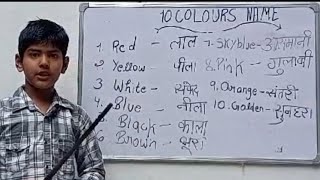 10 COLOURS NAME
1. Red - लाल
2. Yellow - पीला
3 White - सफेद
4. Blue - नीला
Black - काला
6 Brown - भूरा
7. Sky blue - आसमानी
8. Pink - गुलाबी
9. Orange - संतरी
10. Golden - सुनहरा